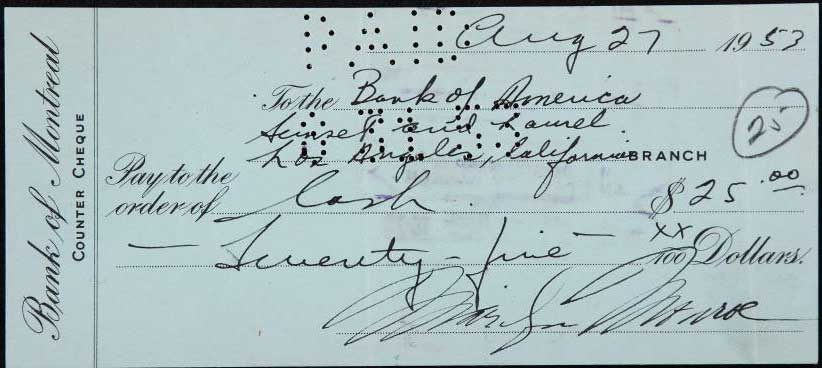 PAID
Aug 27 1953
To the Bank of America
Sunset and Laurel
Los Angeles, California BRANCH
25
Pay to the
order of Cash. $25.00
— Twenty-five — XX/100 Dollars.
Marilyn Monroe
Bank of Montreal
COUNTER CHEQUE